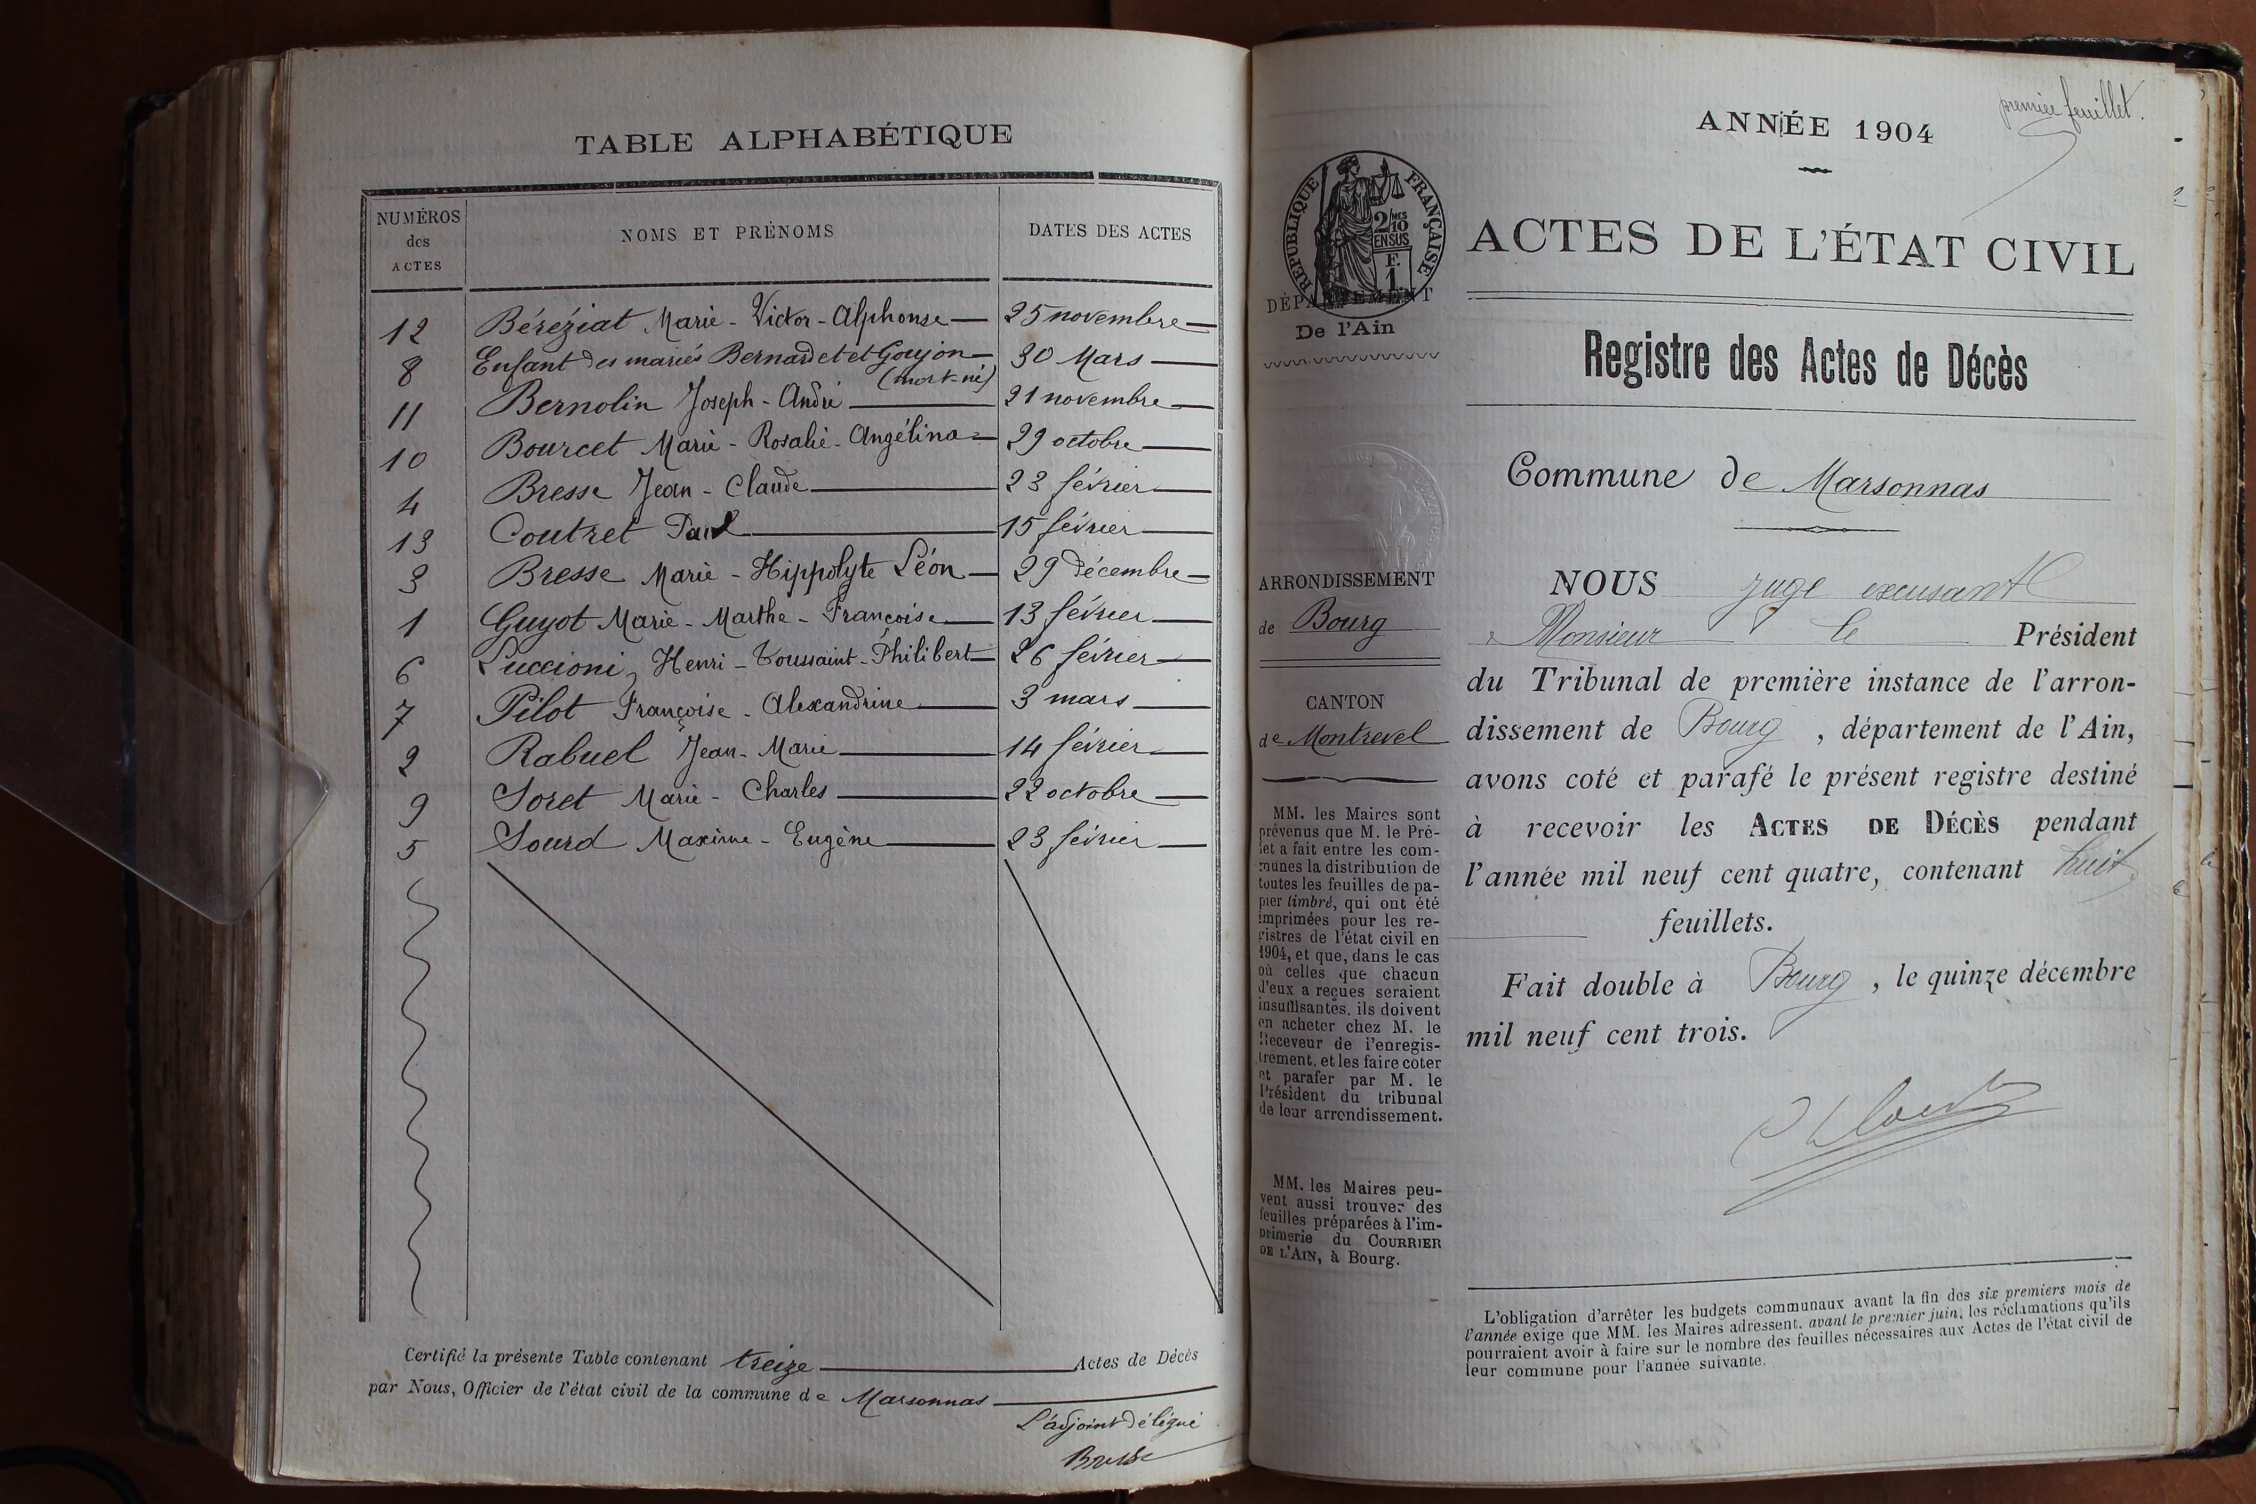 TABLE ALPHABÉTIQUE
NUMÉROS des ACTES NOMS ET PRÉNOMS DATES DES ACTES
12 Béréziat Marie - Victor - Alphonse — 25 novembre —
8 Enfant des mariés Bernardet et Goujon — 30 Mars —
(mort-né)
11 Bernolin Joseph - André — 21 novembre —
10 Bourcet Marie - Rosalie - Angélina — 29 octobre —
4 Bresse Jean - Claude — 23 février —
13 Coutret Paul — 15 février —
3 Bresse Marie - Hippolyte Léon — 29 décembre —
1 Guyot Marie - Marthe - Françoise — 13 février —
6 Luccioni, Henri - Toussaint - Philibert — 26 février —
7 Pilot Françoise - Alexandrine — 3 mars —
2 Rabuel Jean - Marie — 14 février —
9 Soret Marie - Charles — 22 octobre —
5 Sourd Maxime - Eugène — 23 février —
Certifié la présente Table contenant treize — Actes de Décès
par Nous, Officier de l'état civil de la commune de Marsonnas —
L'adjoint délégué
Bresse
premier feuillet.
ANNÉE 1904
RÉPUBLIQUE FRANÇAISE
2/10 MES
EN SUS
F.
1
DÉPARTEMENT
De l'Ain
ARRONDISSEMENT
de Bourg
CANTON
de Montrevel
MM. les Maires sont
prévenus que M. le Pré-
fet a fait entre les com-
munes la distribution de
toutes les feuilles de pa-
pier timbré, qui ont été
imprimées pour les re-
gistres de l'état civil en
1904, et que, dans le cas
où celles que chacun
d'eux a reçues seraient
insuffisantes, ils doivent
en acheter chez M. le
Receveur de l'enregis-
trement, et les faire coter
et parafer par M. le
Président du tribunal
de leur arrondissement.
MM. les Maires peu-
vent aussi trouver des
feuilles préparées à l'im-
primerie du COURRIER
DE L'AIN, à Bourg.
ACTES DE L'ÉTAT CIVIL
Registre des Actes de Décès
Commune de Marsonnas
NOUS juge excusant
Monsieur le Président
du Tribunal de première instance de l'arron-
dissement de Bourg, département de l'Ain,
avons coté et parafé le présent registre destiné
à recevoir les ACTES DE DÉCÈS pendant
l'année mil neuf cent quatre, contenant huit
feuillets.
Fait double à Bourg, le quinze décembre
mil neuf cent trois.
L'obligation d'arrêter les budgets communaux avant la fin des six premiers mois de
l'année exige que MM. les Maires adressent, avant le premier juin, les réclamations qu'ils
pourraient avoir à faire sur le nombre des feuilles nécessaires aux Actes de l'état civil de
leur commune pour l'année suivante.